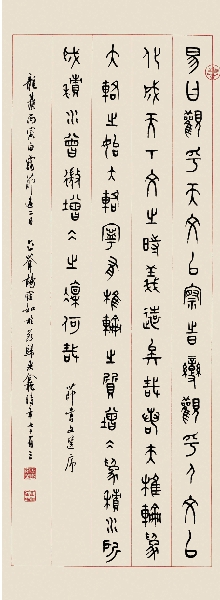 易曰觀乎天文以察時變觀乎人文以
化成天下文之時義遠矣哉若夫椎輪為
大輅之始大輅寧有椎輪之質增冰為積水所
成積水曾微增冰之凜何哉 節書文選序
龍集丙寅白露節過二日 時年七十有三